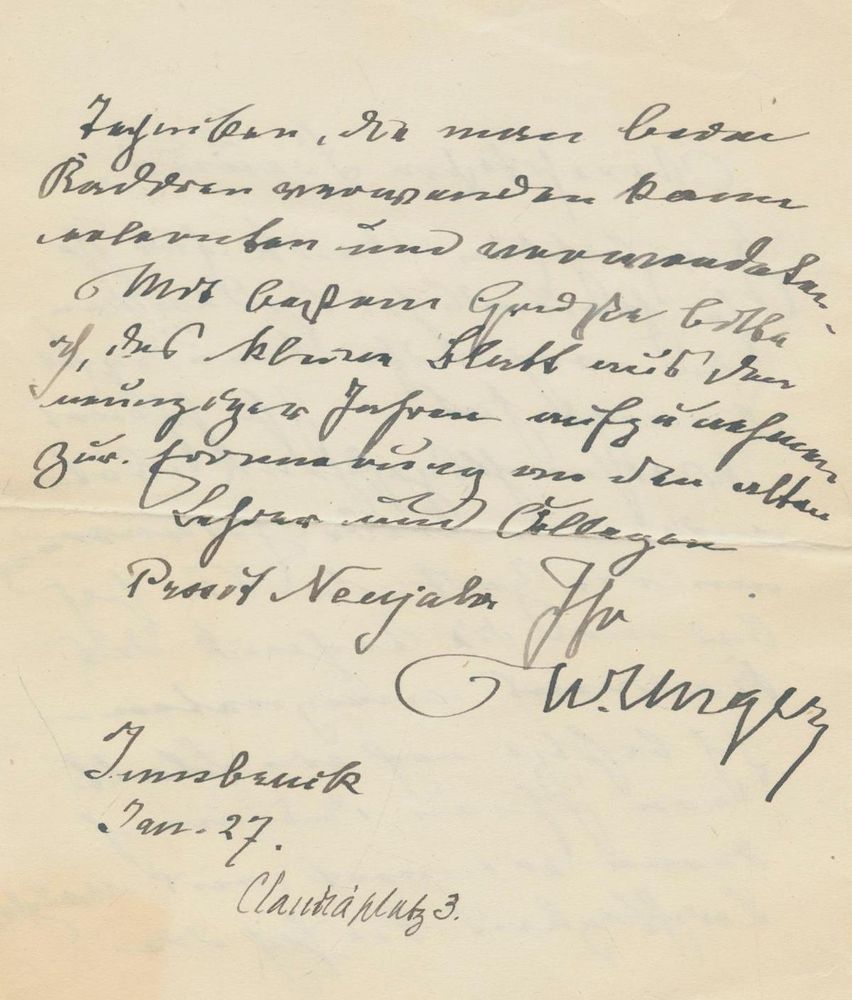 Techniken, die man beim
Radieren verwenden kann
erlernten und verwendeten.
Mit bestem Gruße bitte
ich, das kleine Blatt aus den
neunziger Jahren aufzunehmen
zur Erinnerung an den alten
Lehrer und Collegen
Prosit Neujahr Ihr
W. Unger
Innsbruck
Jan. 27.
Claudiaplatz 3.